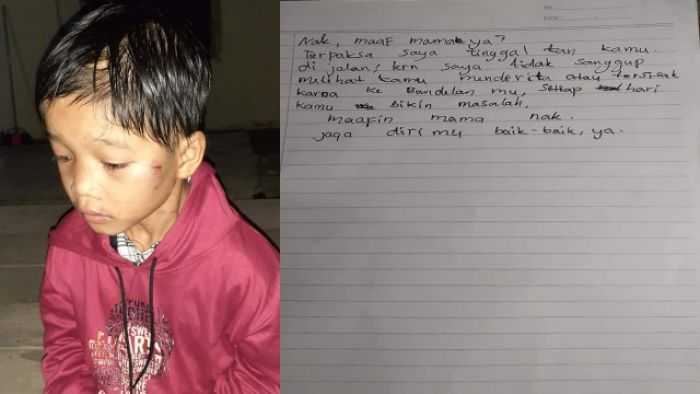 Nak, maaf mamak ya?
Terpaksa saya tinggal kan kamu.
di jalan, krn saya tidak sanggup
melihat kamu menderita atau tersisak
karna ke Bandelan mu, setiap hari
kamu bikin masalah.
maafin mama nak.
jaga diri mu baik-baik, ya.
SWEET